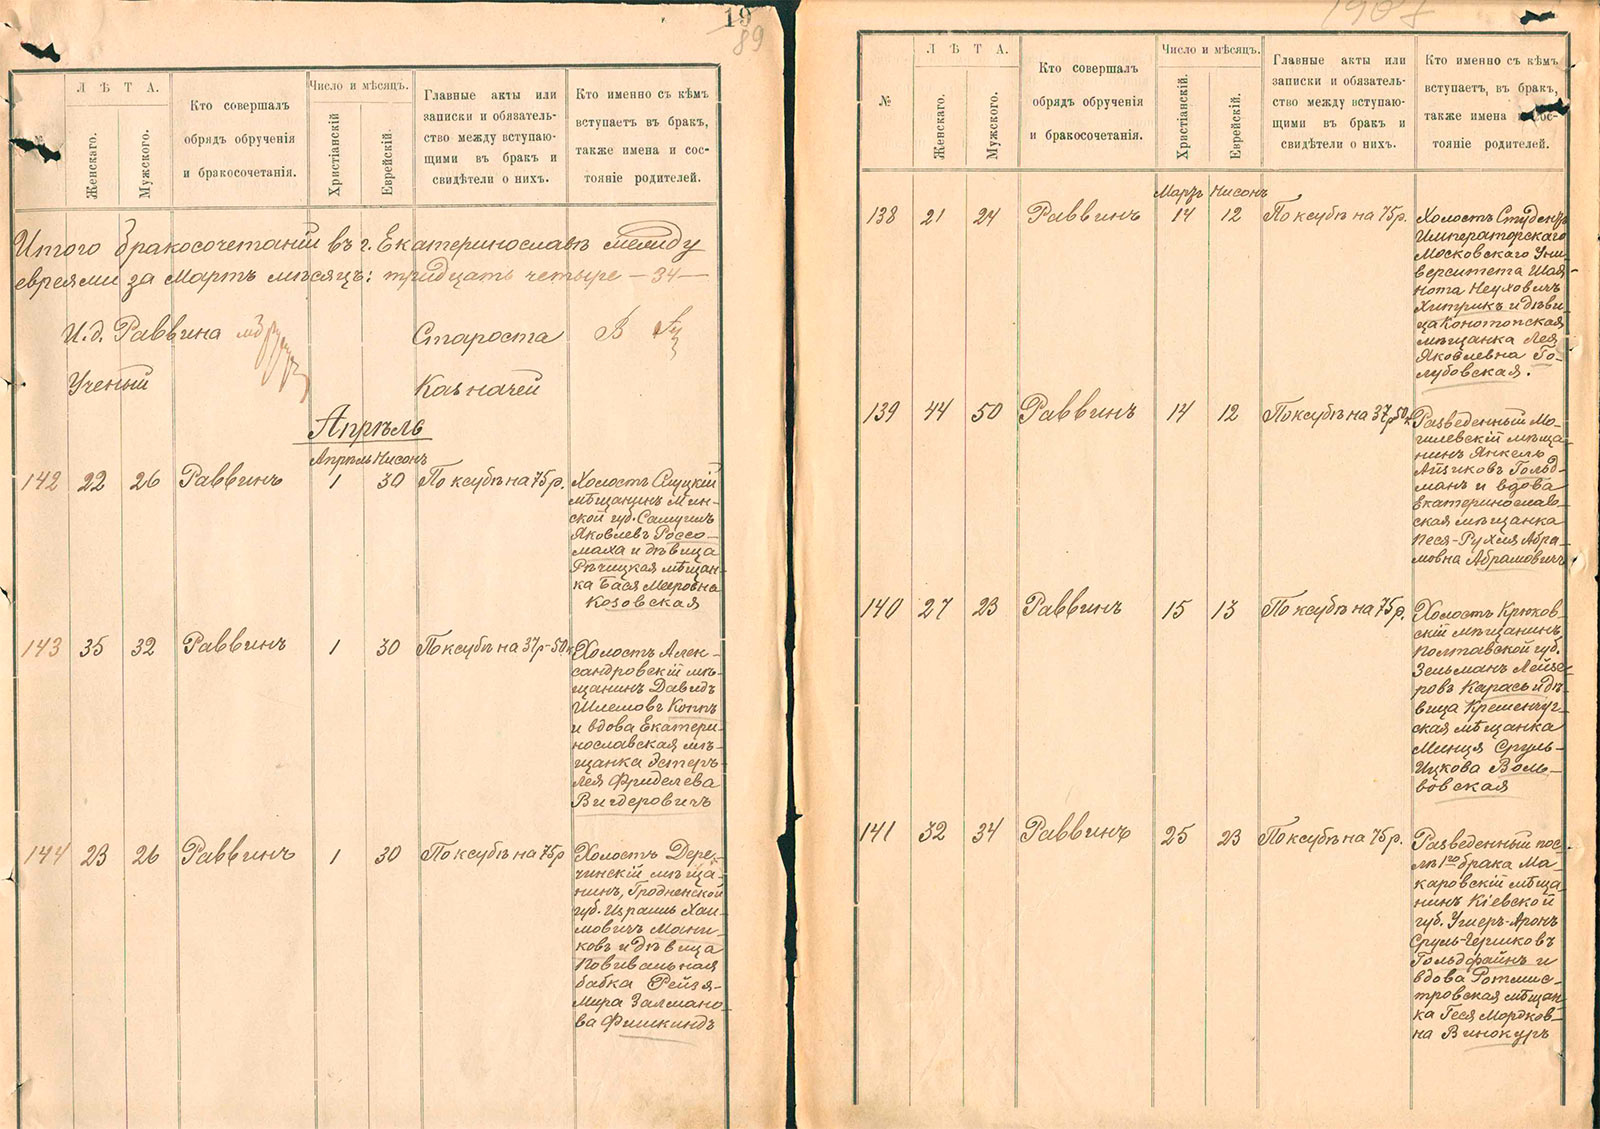 19
89
№
ЛѢТА.
Женскаго.
Мужского.
Кто совершалъ
обрядъ обрученія
и бракосочетанія.
Число и мѣсяцъ.
Христіанскій
Еврейскій.
Главные акты или
записки и обязатель-
ство между вступаю-
щими въ бракъ и
свидѣтели о нихъ.
Кто именно съ кѣмъ
вступаетъ въ бракъ,
также имена и сос-
тояніе родителей.
Итого бракосочетаній въ г. Екатеринославѣ между
евреями за Мартъ мѣсяцъ: тридцать четыре — 34 —
И. д. Раввина
Староста
Ученый
Казначей
Апрѣль
Апрѣль Нисонъ
142 22 26 Раввинъ 1 30 По ксубѣ на 75 р.
Холостъ Слуцкій
мѣщанинъ Мин-
ской губ. Самуилъ
Яковлевъ Россо-
маха и дѣвица
Рѣчицкая мѣщан-
ка Бася Мееровна
Козовская
143 35 32 Раввинъ 1 30 По ксубѣ на 37 р-50 к
Холостъ Алек-
сандровскій мѣ-
щанинъ Давидъ
Шлемовъ Коппъ
и вдова Екатери-
нославская мѣ-
щанка Эстеръ
Лея Фриделева
Вигдеровичъ
144 23 26 Раввинъ 1 30 По ксубѣ на 75 р
Холостъ Дере-
чинскій мѣща-
нинъ, Гродненской
губ. Израиль Хаи-
мовичъ Мани-
ковъ и дѣвица
Повивальная
бабка Рейзя-
Мира Залмано-
ва Фишкиндъ
№
ЛѢТА.
Женскаго.
Мужского.
Кто совершалъ
обрядъ обрученія
и бракосочетанія.
Число и мѣсяцъ.
Христіанскій.
Еврейскій.
Главные акты или
записки и обязатель-
ство между вступаю-
щими въ бракъ и
свидѣтели о нихъ.
Кто именно съ кѣмъ
вступаетъ, въ бракъ,
также имена и сос-
тояніе родителей.
Мартъ Нисонъ
138 21 24 Раввинъ 14 12 По ксубѣ на 75 р.
Холостъ Студентъ
Императорскаго
Московскаго Уни-
верситета Шая-
Нота Неуховичъ
Хитрикъ и дѣви-
ца Конотопская
мѣщанка Лея
Яковлевна Го-
лубовская.
139 44 50 Раввинъ 14 12 По ксубѣ на 37 р 50 к
Разведенный Мо-
гилевскій мѣща-
нинъ Янкель
Ациковъ Гольд-
манъ и вдова
Екатеринослав-
ская мѣщанка
Песя-Рухля Абра-
мовна Абрамовичъ
140 27 23 Раввинъ 15 13 По ксубѣ на 75 р.
Холостъ Крюков-
скій мѣщанинъ,
Полтавской губ.
Зельманъ Лейзе-
ровъ Карась и дѣ-
вица Кременчуг-
ская мѣщанка
Минця Сруль-
Ицкова Воль-
вовская
141 32 34 Раввинъ 25 23 По ксубѣ на 75 р.
Разведенный пос-
лѣ 1го брака Ма-
каровскій мѣща-
нинъ Кіевской
губ. Ушеръ-Аронъ
Сруль-Гершковъ
Гольдфайнъ и
вдова Ротмис-
тровская мѣщан-
ка Геся Мордков-
на Винокуръ